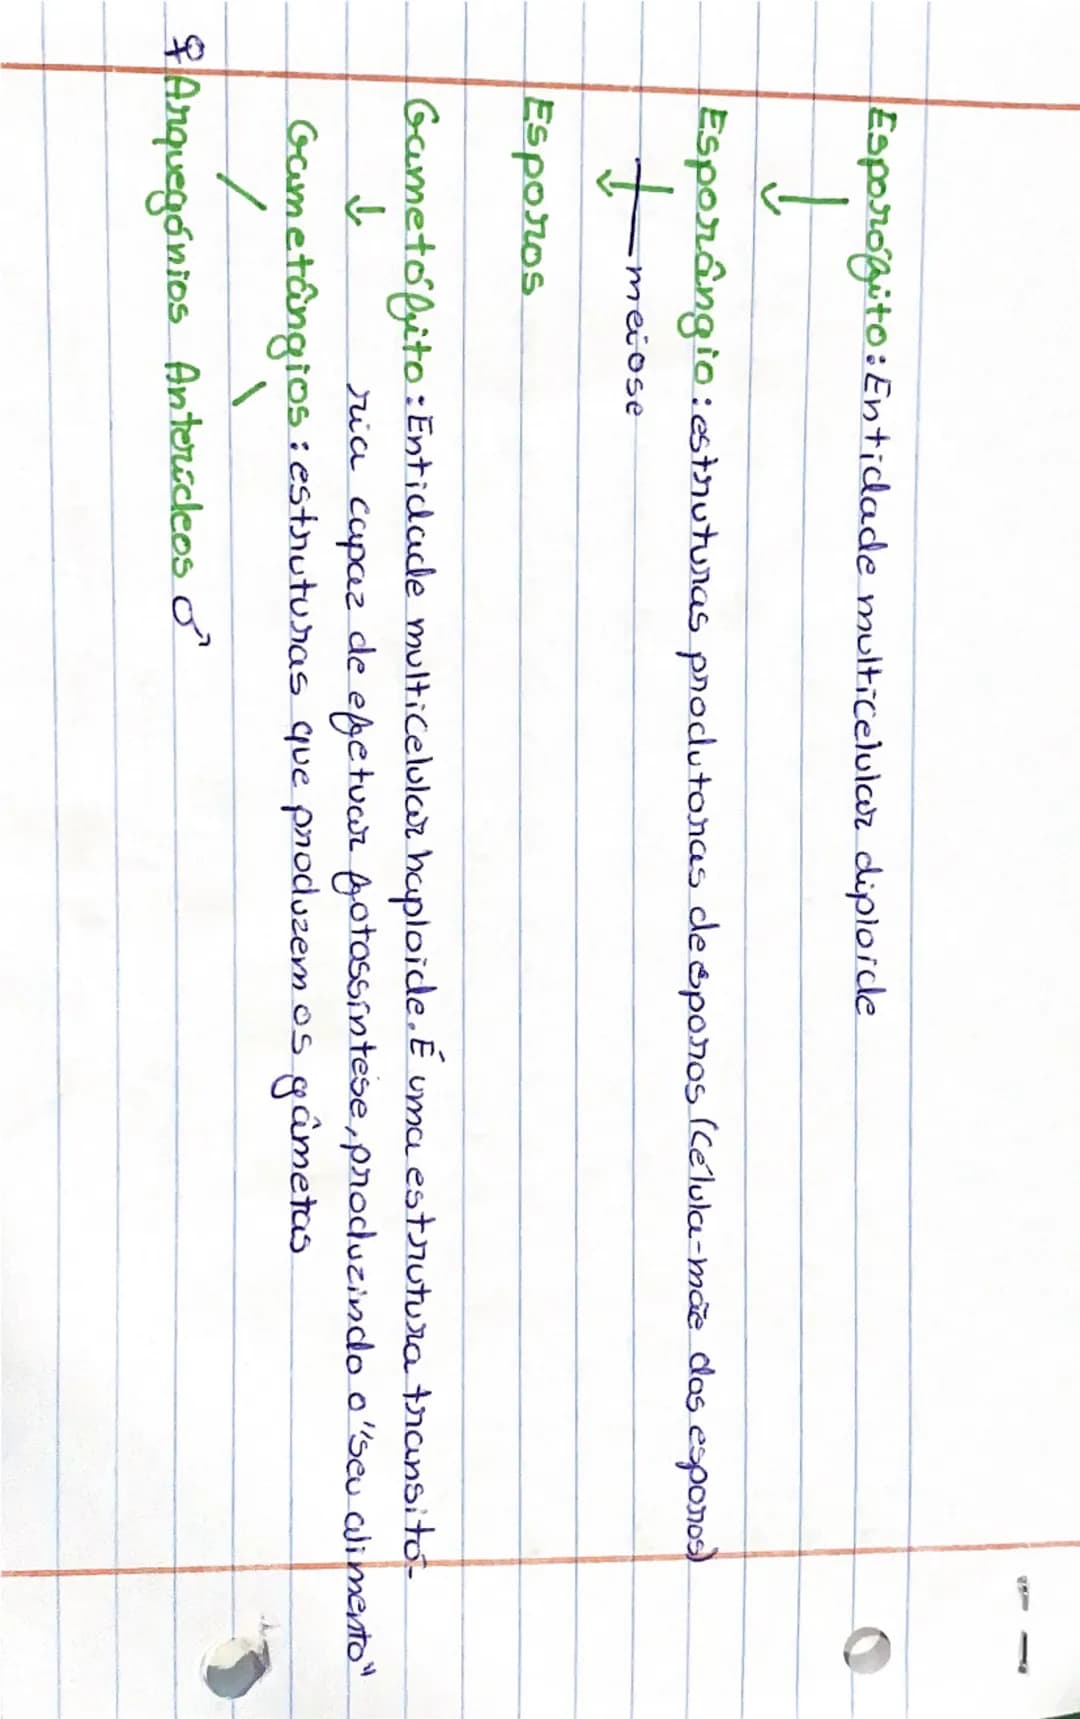 Esporófito: Entidade multicelular diploide
Esporângio: estruturas produtoras de esporos (célula-mãe dos esporos)
meiose
Esporos
Gametófito: Entidade multicelular haploide. É uma estrutura transitó-
ria capaz de efetuar fotossíntese, produzindo o "seu alimento"
Gametângios: estruturas que produzem os gâmetas
♀ Arquegónios Anterídeos ♂